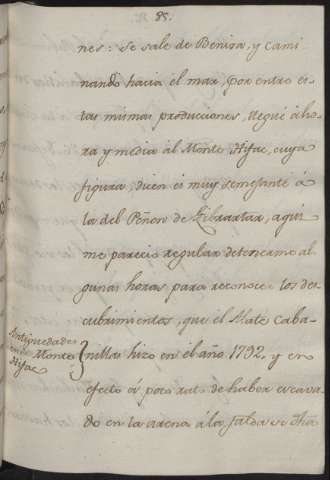 85.
nes: se sale de Beniza, y cami
nando hacia el mar, por entre es-
tas mismas producciones, llegué á ho-
ra y media al Monte Hifac, cuya
figura, dicen es muy semejante á
la del Peñon de Gibraltar, aqui
me parecio regular detenerme al
gunas horas para reconocer los des
cubrimientos, que el Mate Caba-
nillas hizo en el año 1792, y en
efecto a poco rato de haber excava-
do en la arena á la falda de dho
Antiguedades
en el Monte
Hifac